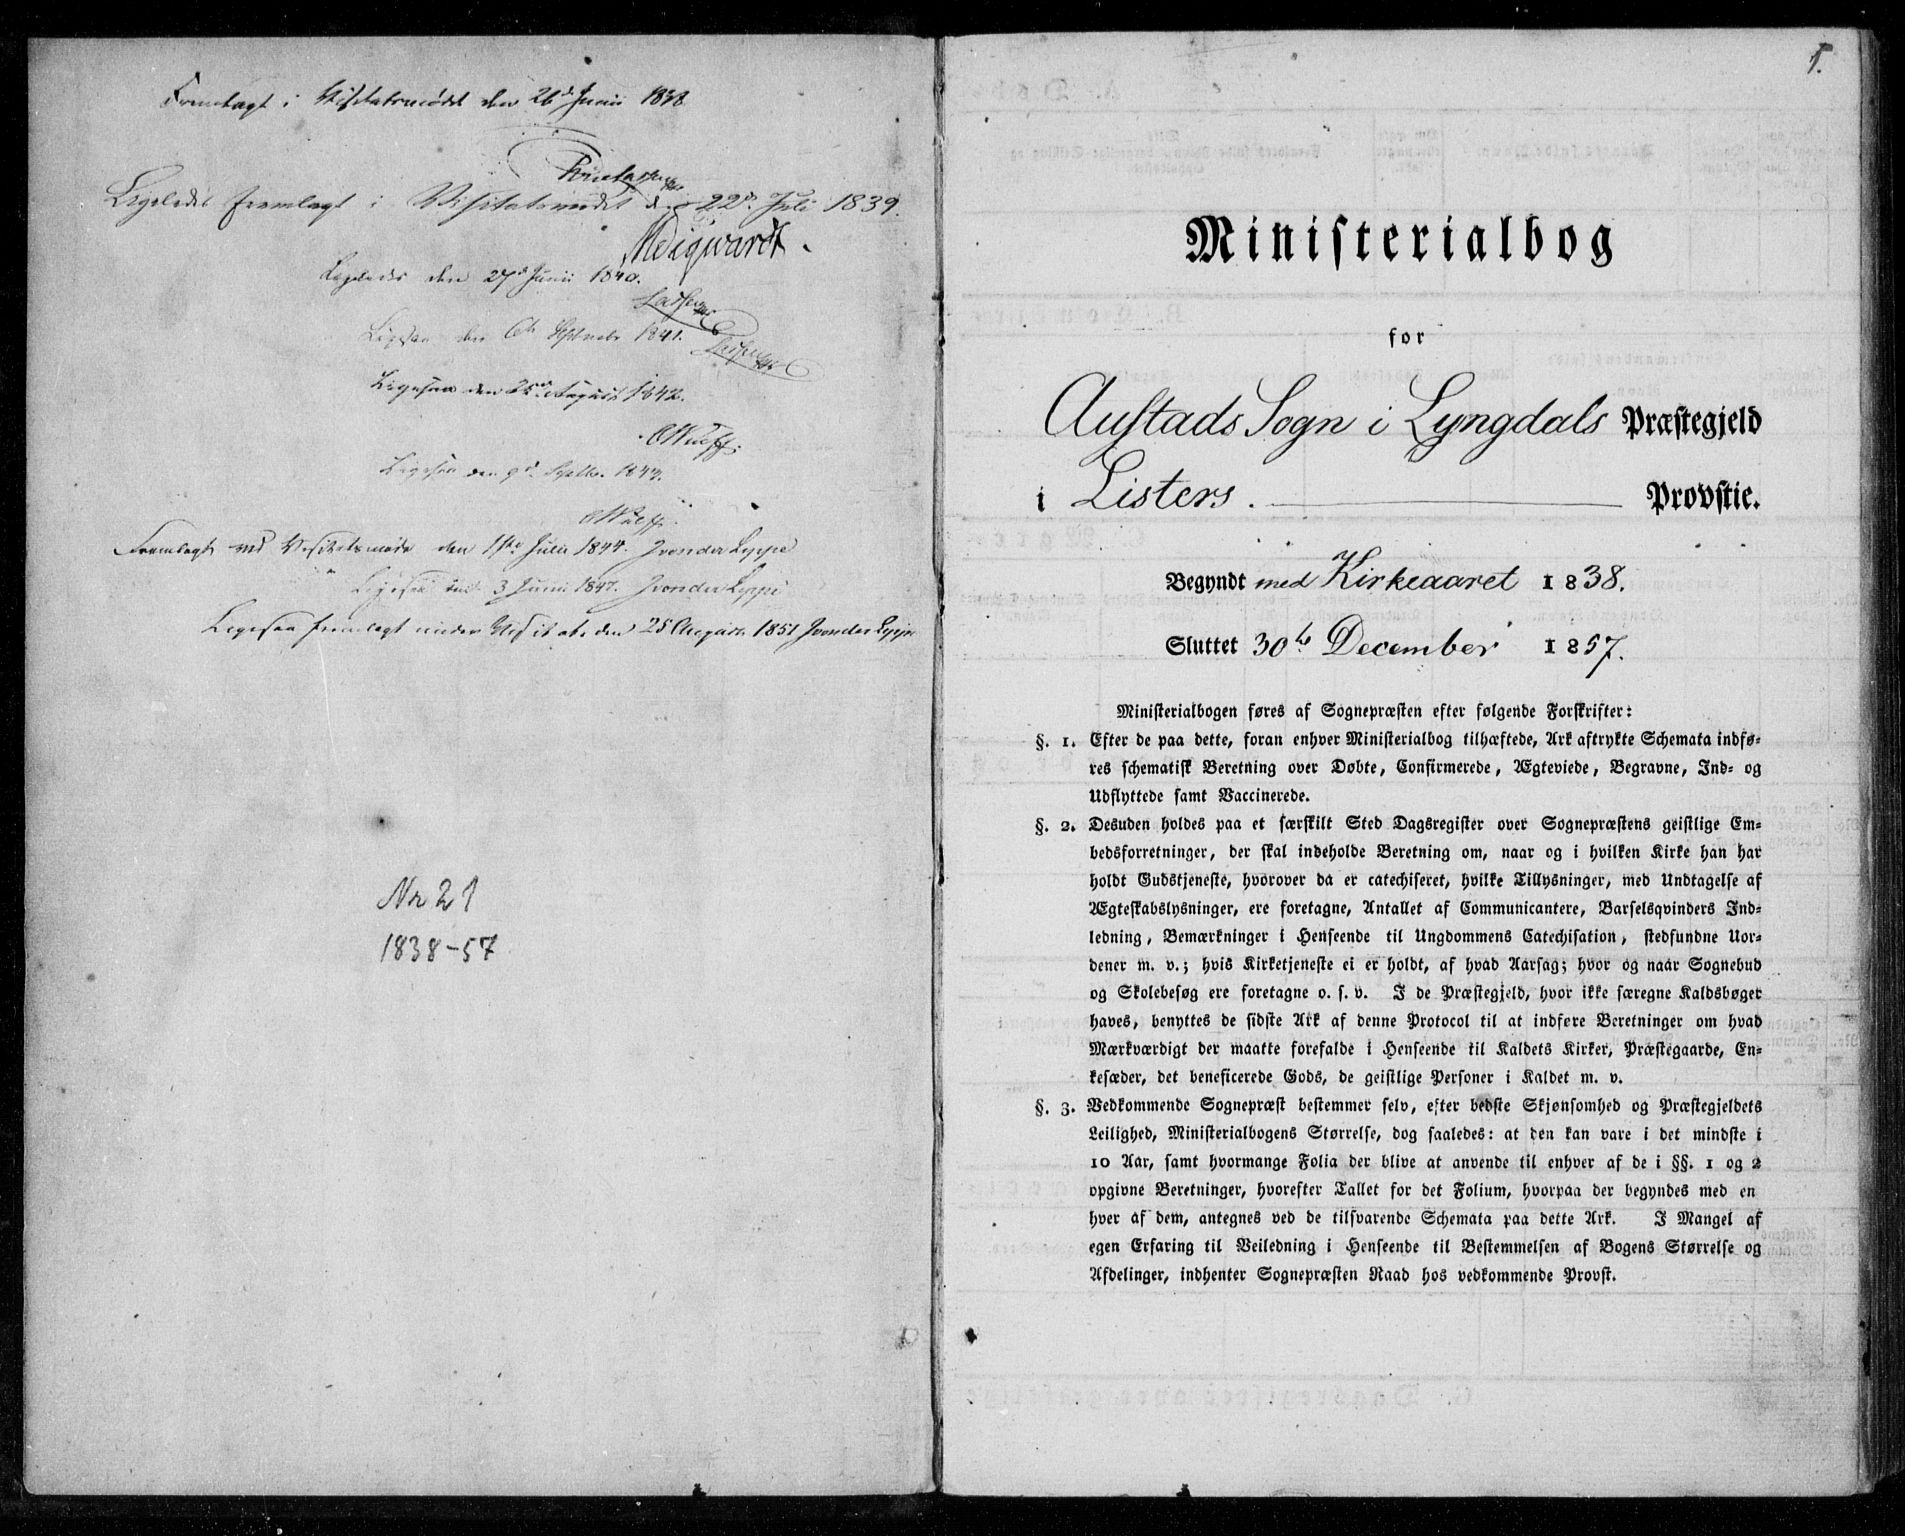 Fremlagt i Visitatsmødet den 26d Junii 1838
Ligeledes fremlagt i Visitatsmødet d. 22de Juli 1839.
Ligeledes den 27d Junii 1840.
Lassen
Ligesaa den 6te September 1841.
Lassen
Ligesaa den 25de August 1842.
OWulff.
Ligesaa den 9d Septbr. 1843.
OWulff.
Fremlagt ved Visitatsmøde den 1ste Julii 1844. JvonderLippe
Ligesaa den 3 Junii 1847. JvonderLippe
Ligesaa fremlagt under Visitats den 25 August 1851 JvonderLippe
Nr 21
1838-57
1.
Ministerialbog
for
Austads Sogn i Lyngdals Præstegjeld
i Listers. Provstie.
Begyndt med Kirkeaaret 1838.
Sluttet 30te December 1857.
Ministerialbogen føres af Sognepræsten efter følgende Forskrifter:
§. 1. Efter de paa dette, foran enhver Ministerialbog tilhæftede, Ark aftrykte Schemata indfø-
res schematisk Beretning over Døbte, Confirmerede, Ægteviede, Begravne, Ind- og
Udflyttede samt Vaccinerede.
§. 2. Desuden holdes paa et særskilt Sted Dagsregister over Sognepræstens geistlige Em-
bedsforretninger, der skal indeholde Beretning om, naar og i hvilken Kirke han har
holdt Gudstjeneste, hvorover da er catechiseret, hvilke Tillysninger, med Undtagelse af
Ægteskabslysninger, ere foretagne, Antallet af Communicantere, Barselsqvinders Ind-
ledning, Bemærkninger i Henseende til Ungdommens Catechisation, stedfundne Uor-
dener m. v.; hvis Kirketjeneste ei er holdt, af hvad Aarsag; hvor og naar Sognebud
og Skolebesøg ere foretagne o. s. v. I de Præstegjeld, hvor ikke særegne Kaldsbøger
haves, benyttes de sidste Ark af denne Protocol til at indføre Beretninger om hvad
Mærkværdigt der maatte forefalde i Henseende til Kaldets Kirker, Præstegaarde, En-
kesæder, det beneficerede Gods, de geistlige Personer i Kaldet m. v.
§. 3. Vedkommende Sognepræst bestemmer selv, efter bedste Skjønsomhed og Præstegjeldets
Leilighed, Ministerialbogens Størrelse, dog saaledes: at den kan vare i det mindste i
10 Aar, samt hvormange Folia der blive at anvende til enhver af de i §§. 1 og 2
opgivne Beretninger, hvorefter Tallet for det Folium, hvorpaa der begyndes med en
hver af dem, antegnes ved de tilsvarende Schemata paa dette Ark. I Mangel af
egen Erfaring til Veiledning i Henseende til Bestemmelsen af Bogens Størrelse og
Afdelinger, indhenter Sognepræsten Raad hos vedkommende Provst.